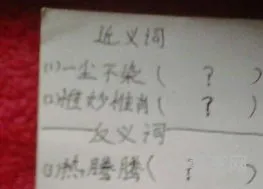 近义词
(1)一尘不染( ? )
(2)惟妙惟肖( ? )
反义词
(3)热腾腾( ? )